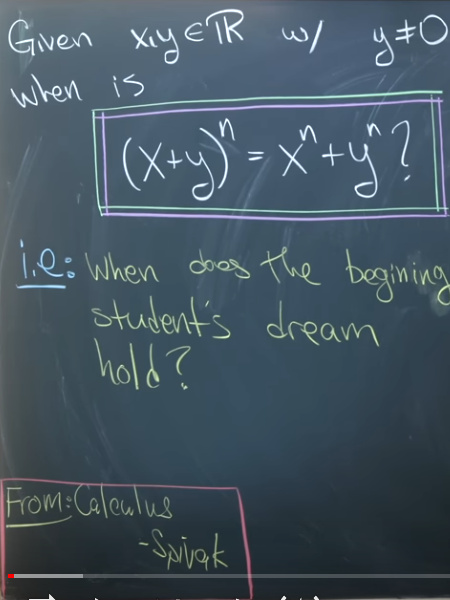 Given x,y ∈ ℝ w/ y≠0
when is
(x+y)ⁿ = xⁿ+yⁿ?
i.e: When does the begining
student's dream
hold?
From: Calculus
-Spivak